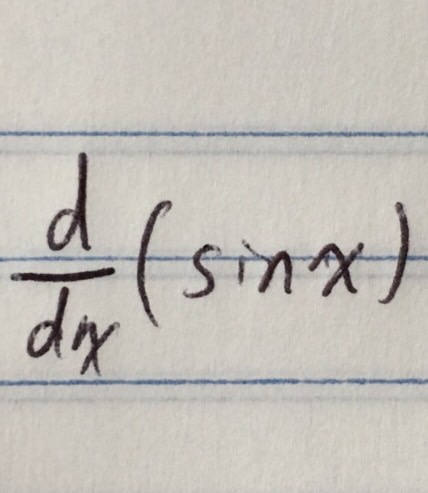 d/dx (sin x)